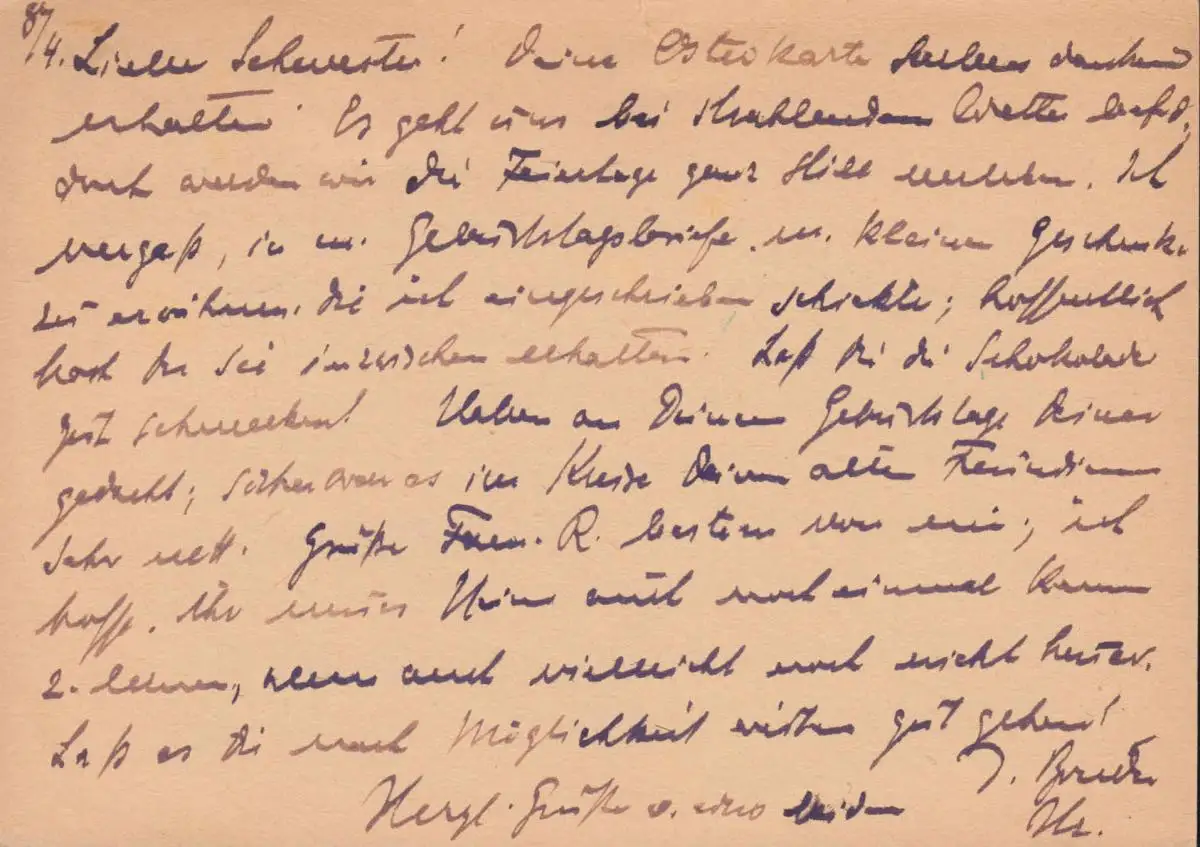 8/4. Liebe Schwester! Deine Osterkarte haben dankend
erhalten. Es geht uns bei strahlendem Wetter
doch werden wir die Feiertage ganz still verleben. Ich
vergaß, in m. Geburtstagsbriefe m. kleinen Geschenke
zu erwähnen, die ich eingeschrieben schickte; hoffentlich
hast Du sie inzwischen erhalten. Laß Dir die Schokolade
gut schmecken! Haben an Deinem Geburtstage Deiner
gedacht; sicher war es im Kreise Deiner alten Freundinnen
sehr nett. Grüße Frau R. bestens von mir; ich
hoffe, Ihr neues Heim auch noch einmal kennen
z. lernen, wenn auch vielleicht noch nicht heuer.
Laß es Dir nach Möglichkeit weiter gut gehen!
D. Bruder
Herzl. Grüße v. uns beiden